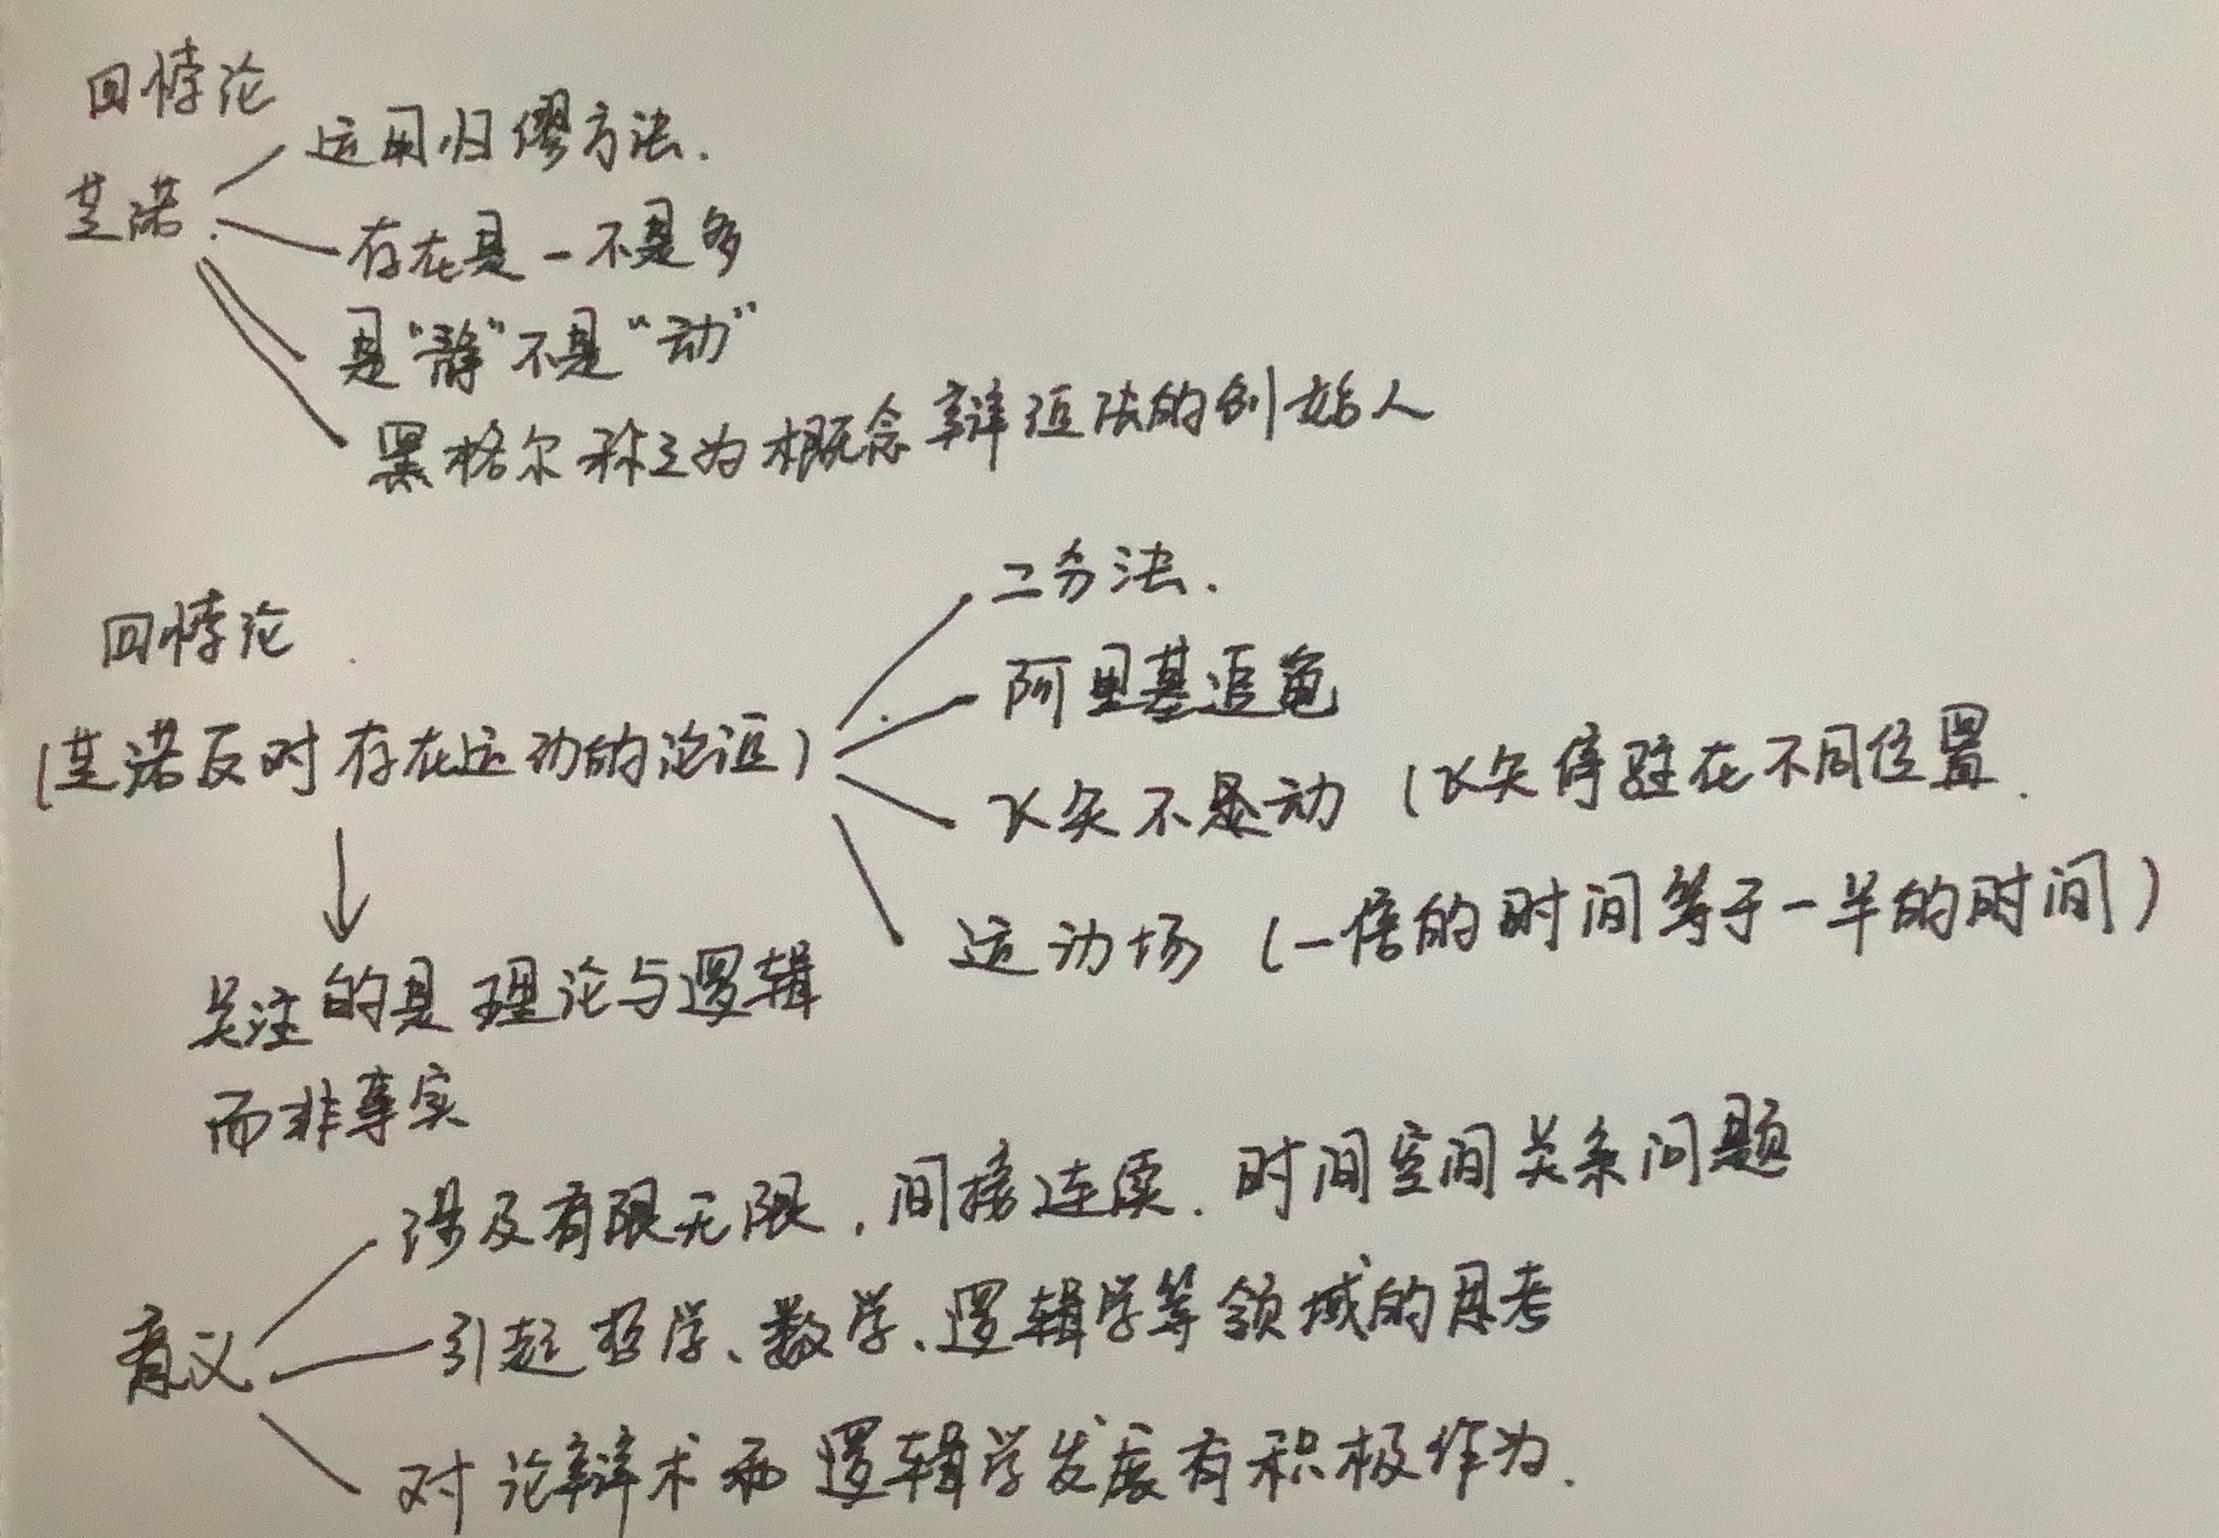 四悖论
运用归谬方法.
芝诺.
存在是一不是多
是“静”不是“动”
黑格尔称之为概念辩证法的创始人
二分法.
四悖论
阿里基追龟
(芝诺反对存在运动的论证)
飞矢不是动 (飞矢停驻在不同位置.
运动场 (一倍的时间等于一半的时间)
关注的是理论与逻辑
而非事实
涉及有限无限, 间接连续. 时间空间关系问题
意义
引起哲学、数学、逻辑学等领域的思考
对论辩术和逻辑学发展有积极作为.